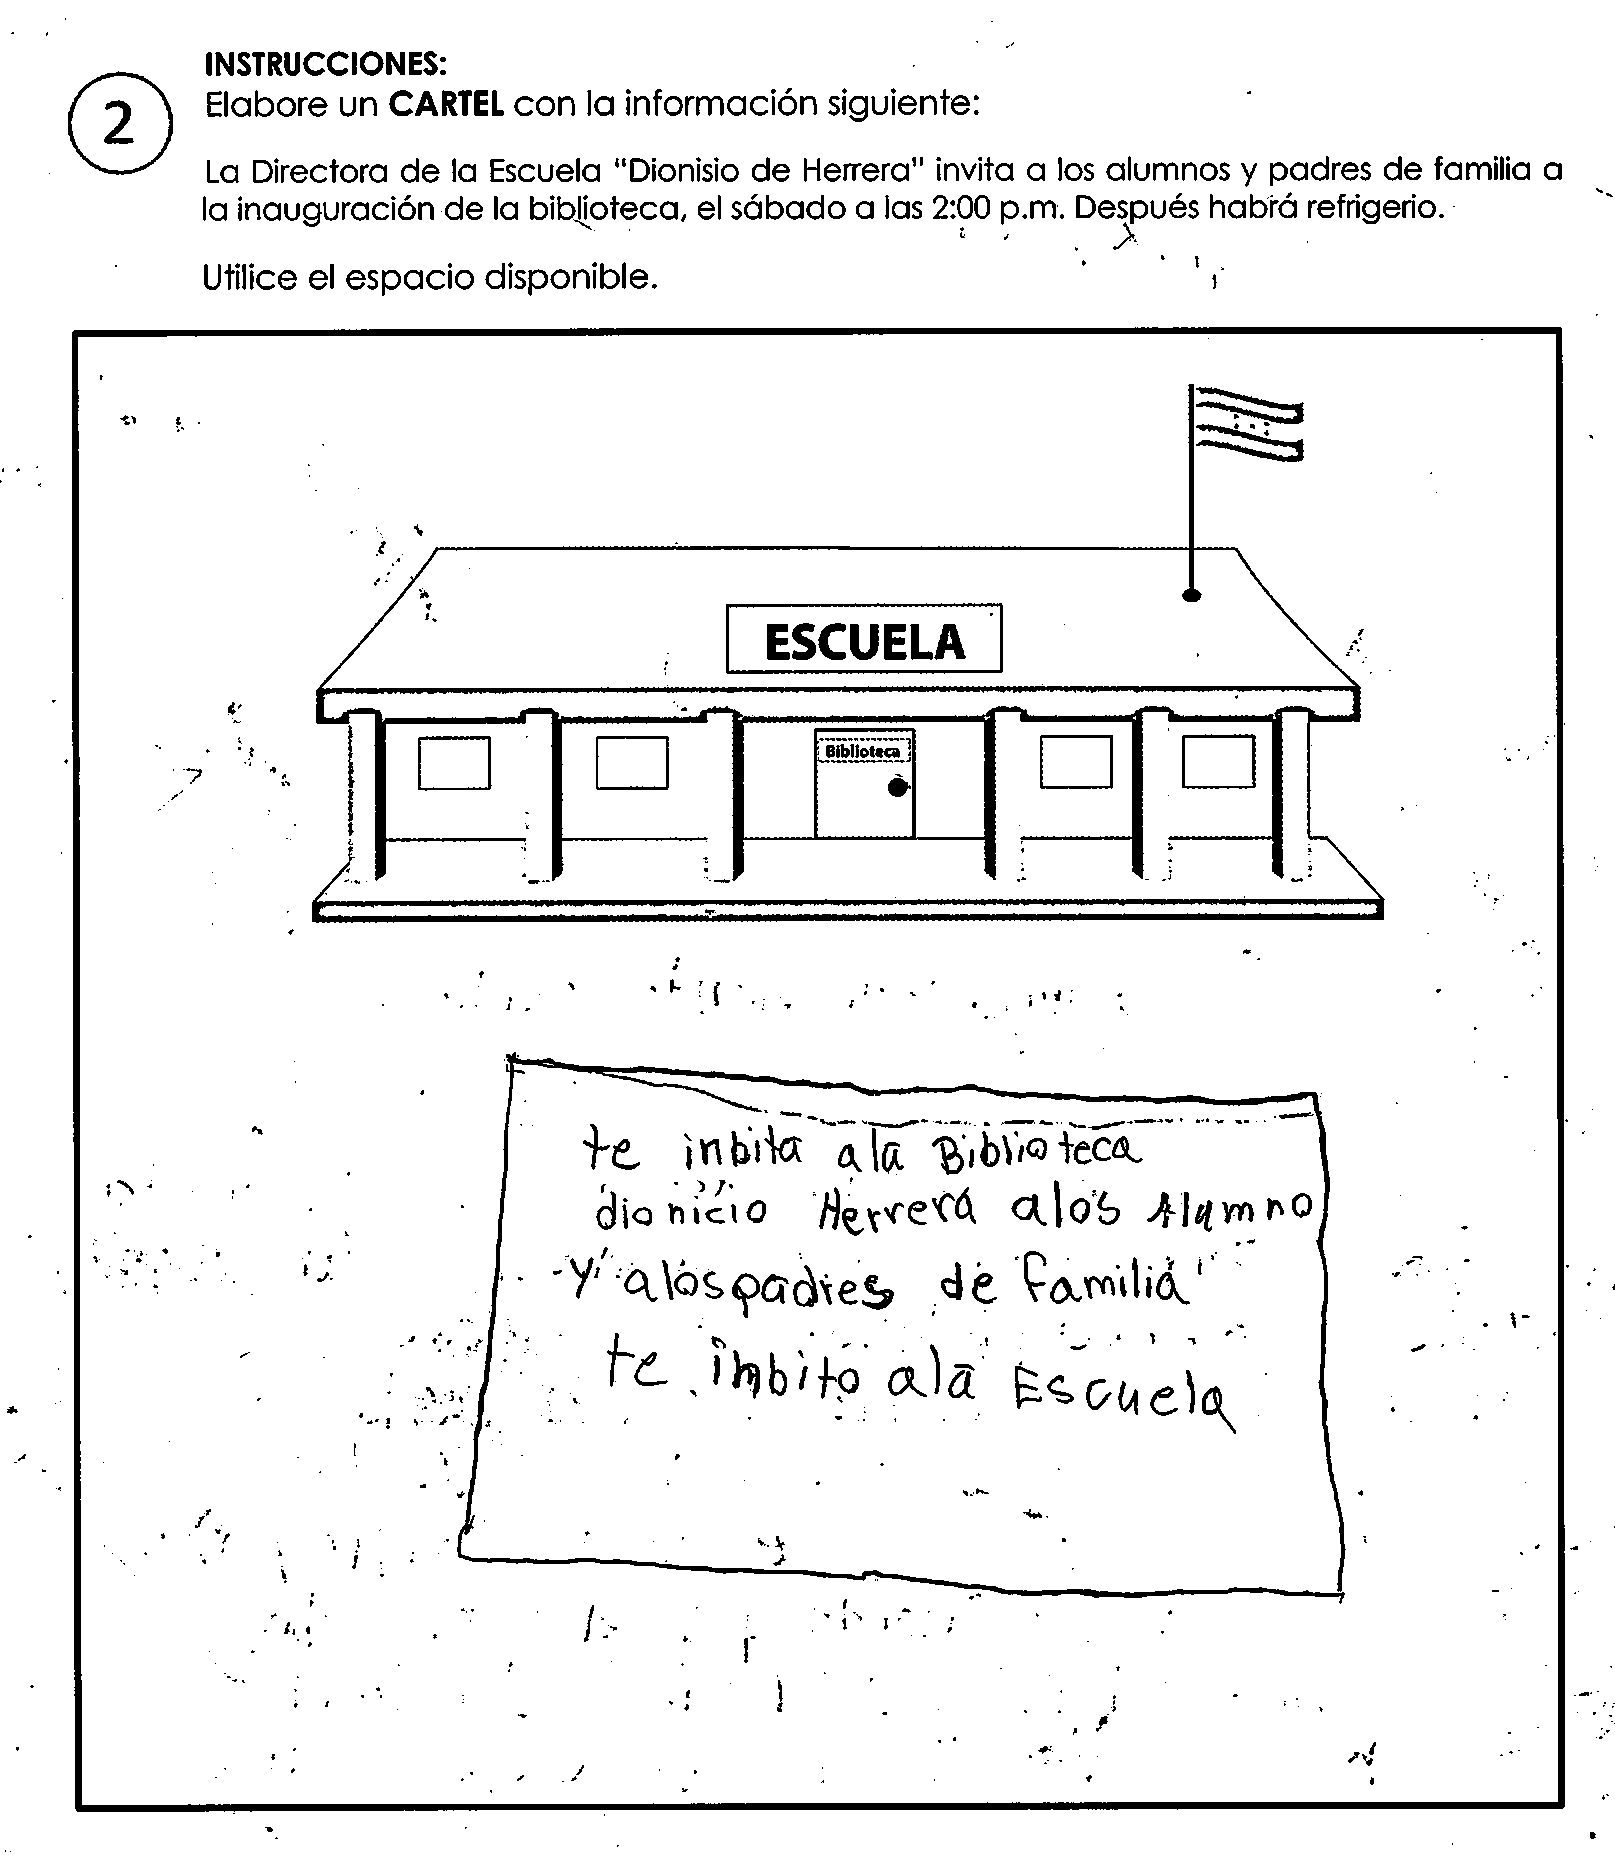 INSTRUCCIONES:
2
Elabore un CARTEL con la información siguiente:
La Directora de la Escuela "Dionisio de Herrera" invita a los alumnos y padres de familia a
la inauguración de la biblioteca, el sábado a las 2:00 p.m. Después habrá refrigerio.
Utilice el espacio disponible.
ESCUELA
Biblioteca
te inbita ala Biblioteca
dionicio Herrera alos Alumno
y alos padres de familia
te imbito ala Escuela